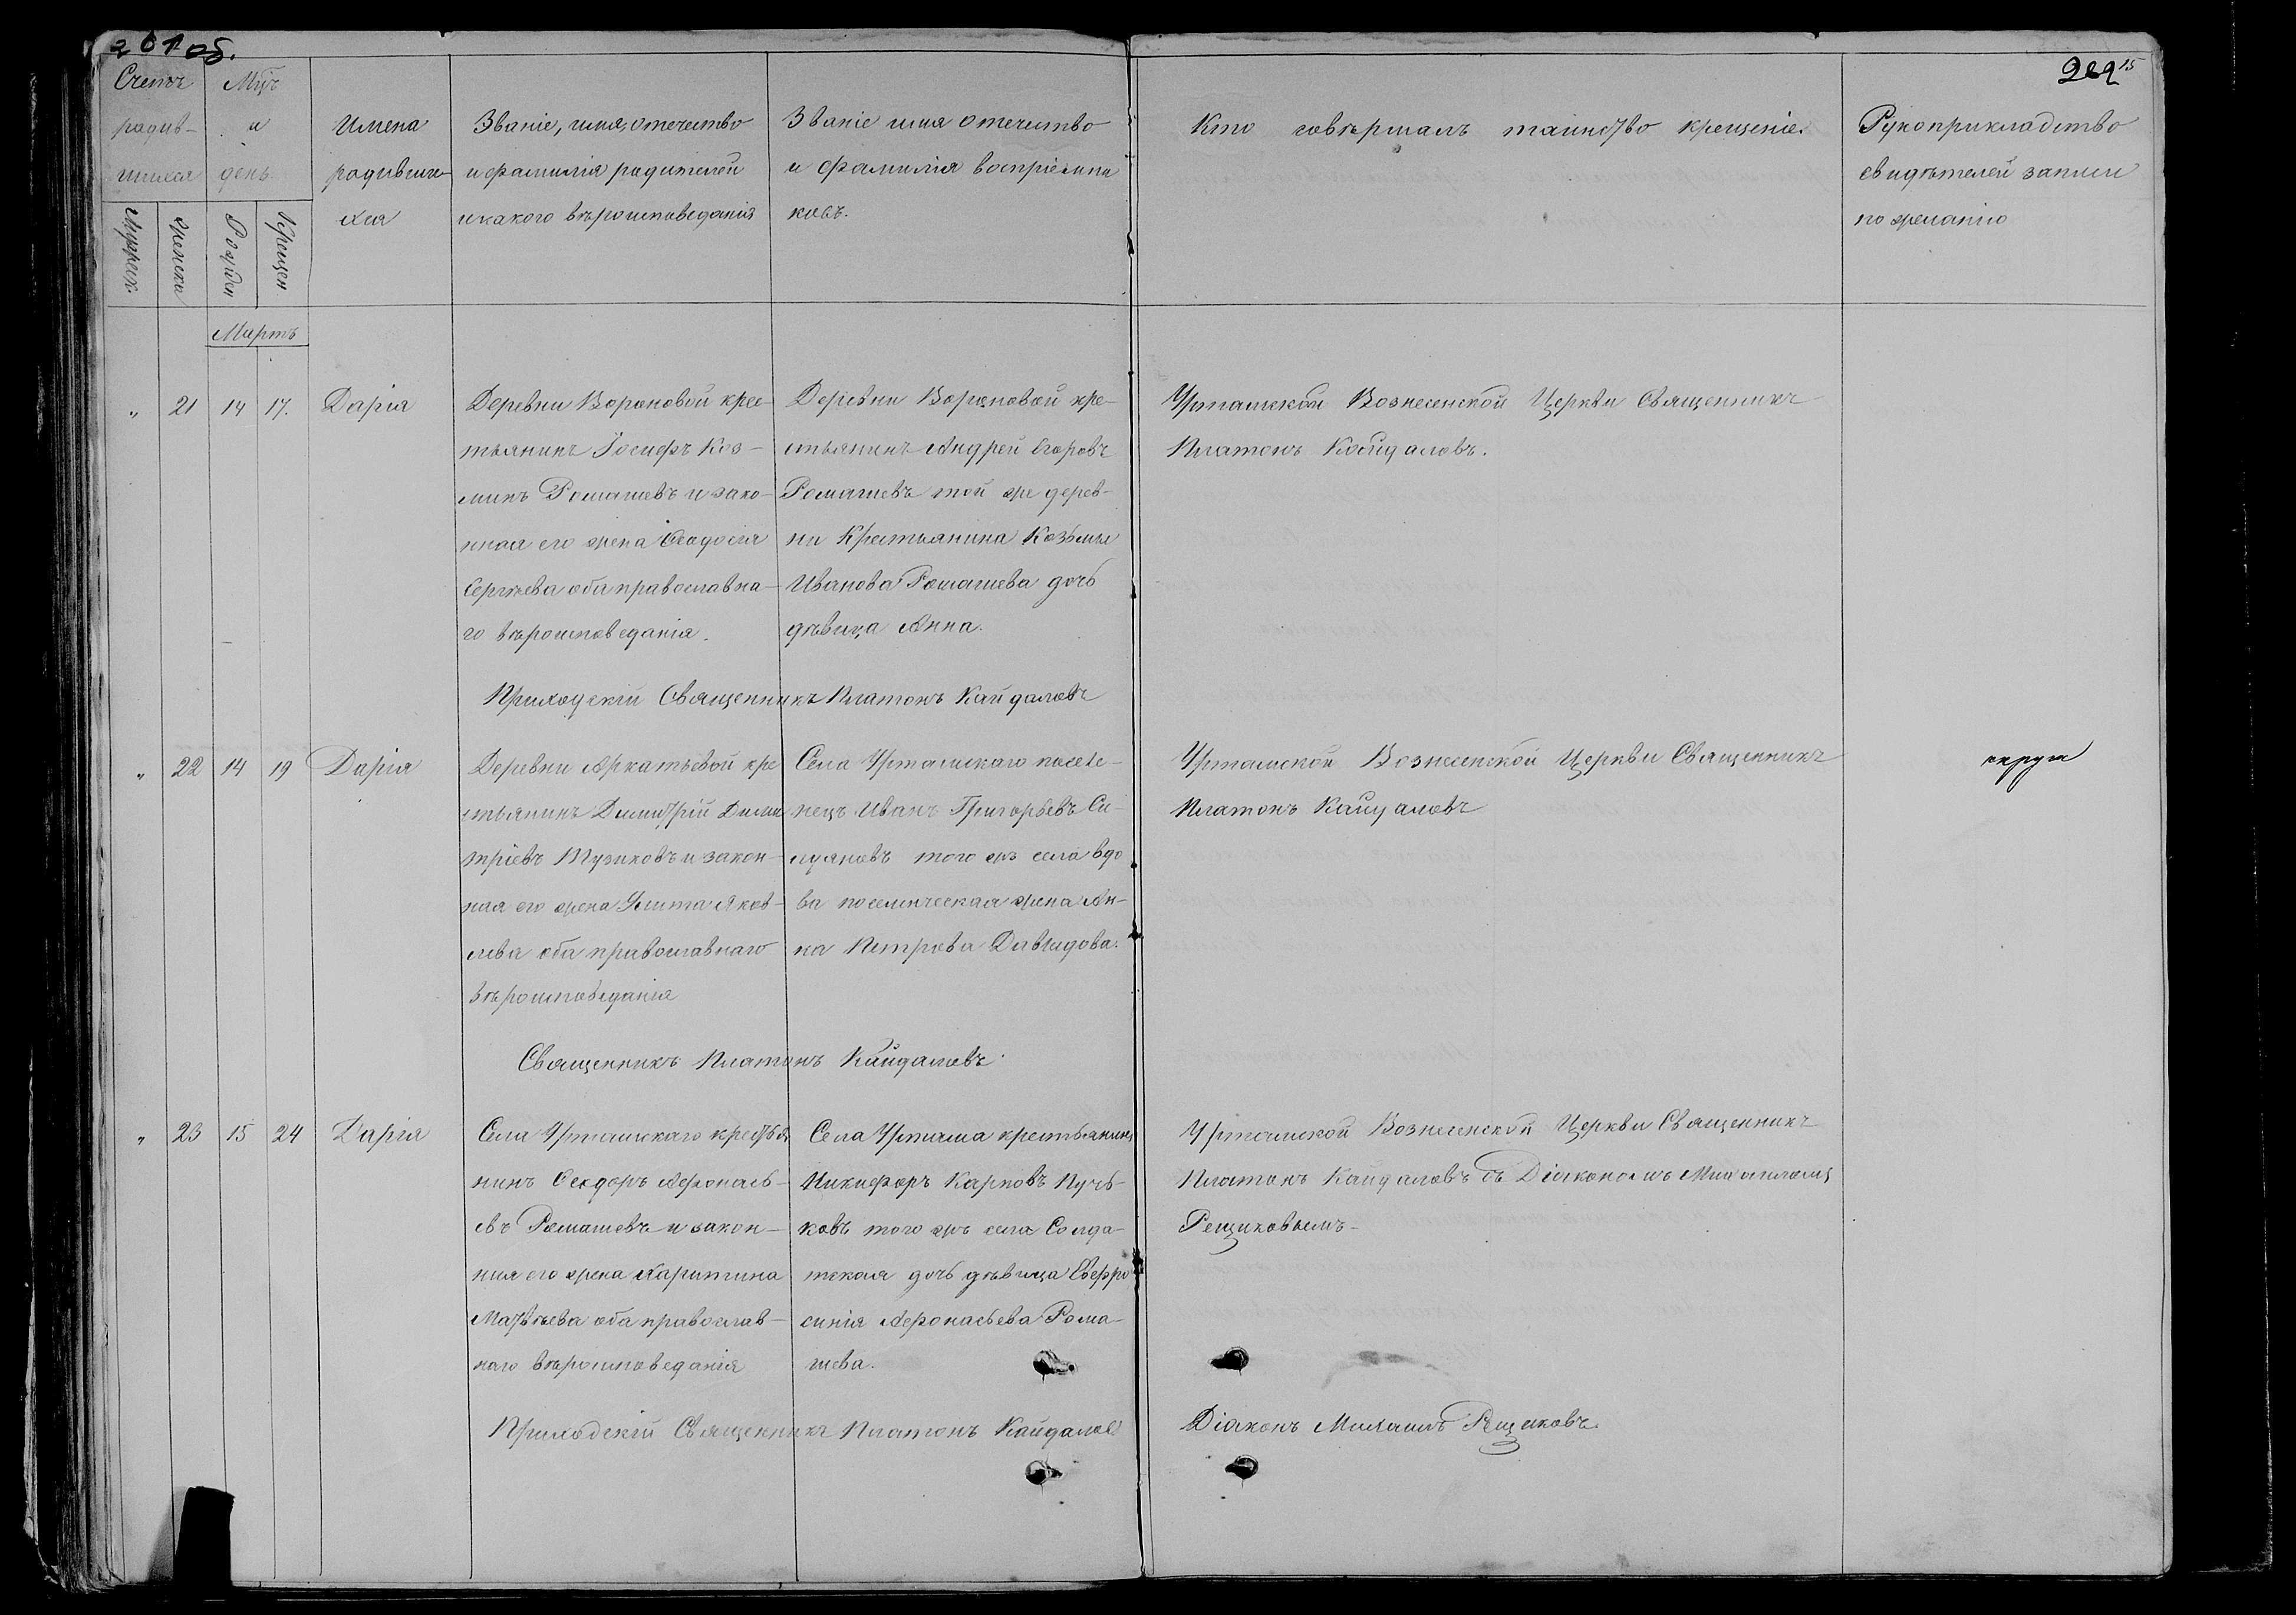 261 об.
262 15
Счетъ
родив-
шихся
Мужеск.
Женска
Мцъ
и
день
Рожден
Крещен
Имена
родивши-
хся
Званіе, имя, отечество
и фамилія родителей
и какого вѣроисповеданія
Званіе имя отечество
и фамилія воспріемни
ковъ.
Кто совѣршалъ таинство крещеніе.
Рукоприкладство
свидѣтелей записи
по желанію
Мартъ
„ 21 14 17. Дарія
Деревни Вороновой крес-
тьянинъ Іосифъ Коз-
минъ Ромашевъ и зако-
нная его жена Ѳеодосія
Сергѣева оба православна-
го вѣроисповеданія.
Деревни Вороновой кре-
стьянинъ Андрей Егоровъ
Ромашевъ той же дерев-
ни Крестьянина Козьмы
Иванова Ромашева дочь
дѣвица Анна.
Уртамской Вознесенской Церкви Священникъ
Платонъ Кайдаловъ.
Приходскій Священникъ Платонъ Кайдаловъ
„ 22 14 19 Дарія
Деревни Аркатьевой кре
стьянинъ Димитрій Дими
тріевъ Тузиковъ и закон-
ная его жена Улита Яков-
лева оба православнаго
вѣроисповеданія
Села Уртамскаго поселе-
нецъ Иванъ Григорьевъ Си-
лдяновъ того жъ села вдо
ва поселическая жена Ан-
на Петрова Давыдова.
Уртамской Вознесенской Церкви Священникъ
Платонъ Кайдаловъ
Священникъ Платонъ Кайдаловъ.
„ 23 15 24 Дарія
Села Уртамскаго крестья
нинъ Ѳеодоръ Афонась-
евъ Ромашевъ и закон-
ная его жена Харитина
Матвѣева оба православ-
наго вѣроисповеданія
Села Уртама крестьянинъ
Никифоръ Карповъ Пучь-
ковъ того жъ села Солда-
тская дочь дѣвица Евфро
синія Афонасьева Рома-
шева.
Уртамской Вознесенской Церкви Священникъ
Платонъ Кайдаловъ съ Діакономъ Михаиломъ
Рещиковымъ-
Приходскій Священникъ Платонъ Кайдаловъ
Діаконъ Михаилъ Рещиковъ.